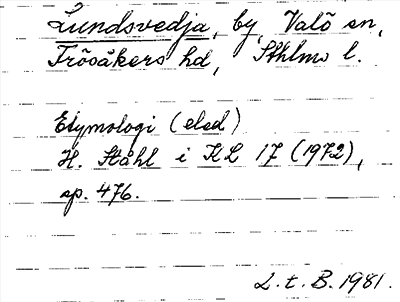 Lundsvedja, by, Valö sn,
Frösåkers hd, Sthlms l.
Etymologi (eled)
H. Ståhl i KL 17 (1972),
sp. 476.
L. t. B. 1981.